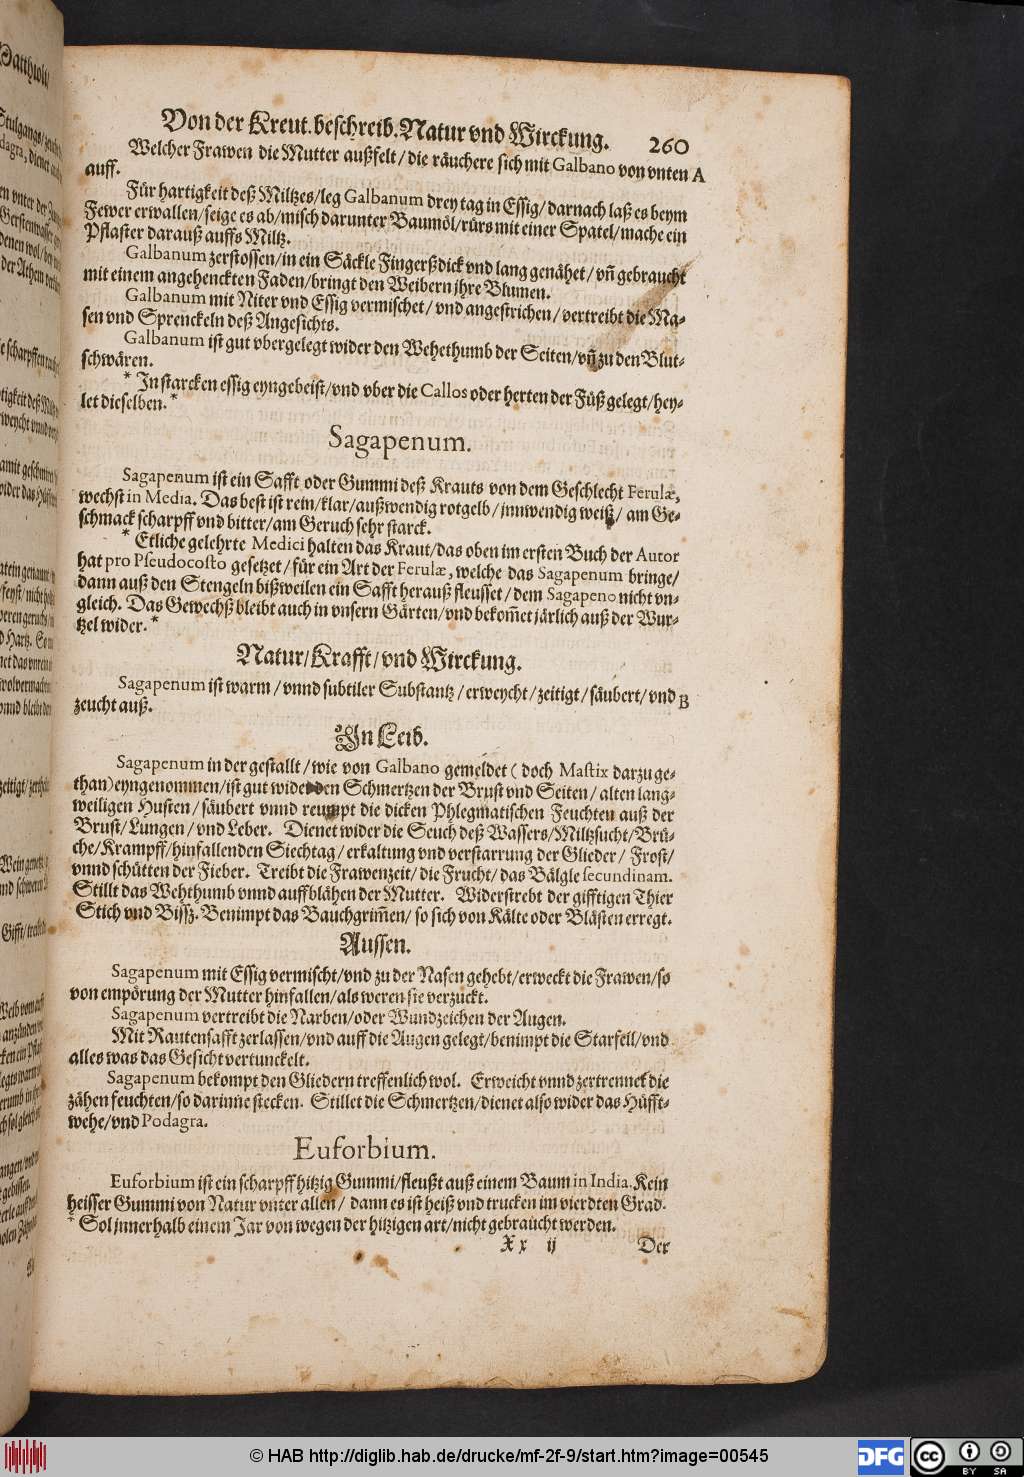 Von der Kreut. beschreib. Natur vnd Wirckung. 260
Welcher Frawen die Mutter außfelt / die räuchere sich mit Galbano von vnten A
auff.
Für hartigkeit deß Miltzes/leg Galbanum drey tag in Essig/ darnach laß es beym
Fewer erwallen/seige es ab/misch darunter Baumöl/rürs mit einer Spatel/mache ein
Pflaster darauß auffs Miltz.
Galbanum zerstossen/in ein Säckle Fingerßdick vnd lang genähet/ vñ gebraucht
mit einem angehenckten Faden/bringt den Weibern jhre Blumen.
Galbanum mit Niter vnd Essig vermischet/ vnd angestrichen / vertreibt die Ma-
sen vnd Sprenckeln deß Angesichts.
Galbanum ist gut vbergelegt wider den Wehethumb der Seiten/vñ zu den Blut-
schwären.
* In starcken essig eyngebeist/vnd vber die Callos oder herten der Füß gelegt/hey-
let dieselben.*
Sagapenum.
Sagapenum ist ein Safft oder Gummi deß Krauts von dem Geschlecht Ferulæ,
wechst in Media. Das best ist rein/klar/außwendig rotgelb/innwendig weiß/ am Ge-
schmack scharpff vnd bitter/am Geruch sehr starck.
* Etliche gelehrte Medici halten das Kraut/das oben im ersten Buch der Autor
hat pro Pseudocosto gesetzet/für ein Art der Ferulæ, welche das Sagapenum bringe/
dann auß den Stengeln bißweilen ein Safft herauß fleusset / dem Sagapeno nicht vn-
gleich. Das Gewechß bleibt auch in vnsern Gärten/vnd bekom̃et järlich auß der Wur-
tzel wider.*
Natur/Krafft/vnd Wirckung.
Sagapenum ist warm / vnnd subtiler Substantz / erweycht/zeitigt/säubert/vnd B
zeucht auß.
In Leib.
Sagapenum in der gestallt /wie von Galbano gemeldet ( doch Mastix darzu ge-
than) eyngenommen/ist gut wider den Schmertzen der Brust vnd Seiten/ alten lang-
weiligen Husten / säubert vnnd reumpt die dicken Phlegmatischen Feuchten auß der
Brust/Lungen / vnd Leber. Dienet wider die Seuch deß Wassers/Miltzsucht/Brü-
che/Krampff/hinfallenden Siechtag/ erkaltung vnd verstarrung der Glieder / Frost/
vnnd schütten der Fieber. Treibt die Frawenzeit/die Frucht/das Bälgle secundinam.
Stillt das Wehthumb vnnd auffblähen der Mutter. Widerstrebt der gifftigen Thier
Stich vnd Bißz. Benimpt das Bauchgrim̃en/ so sich von Kälte oder Blästen erregt.
Aussen.
Sagapenum mit Essig vermischt/vnd zu der Nasen gehebt/erweckt die Frawen/so
von empörung der Mutter hinfallen/als weren sie verzuckt.
Sagapenum vertreibt die Narben/oder Wundzeichen der Augen.
Mit Rautensafft zerlassen/vnd auff die Augen gelegt/benimpt die Starfell/vnd
alles was das Gesicht vertunckelt.
Sagapenum bekompt den Gliedern treffenlich wol. Erweicht vnnd zertrennet die
zähen feuchten/so darinne stecken. Stillet die Schmertzen/dienet also wider das Hüfft-
wehe/vnd Podagra.
Euforbium.
Euforbium ist ein scharpff hitzig Gummi/fleußt auß einem Baum in India. Kein
heisser Gummi von Natur vnter allen / dann es ist heiß vnd trucken im vierdten Grad.
* Sol jnnerhalb einem Jar von wegen der hitzigen art/nicht gebraucht werden.
Xx ij Der
© HAB http://diglib.hab.de/drucke/mf-2f-9/start.htm?image=00545
DFG
cc BY SA